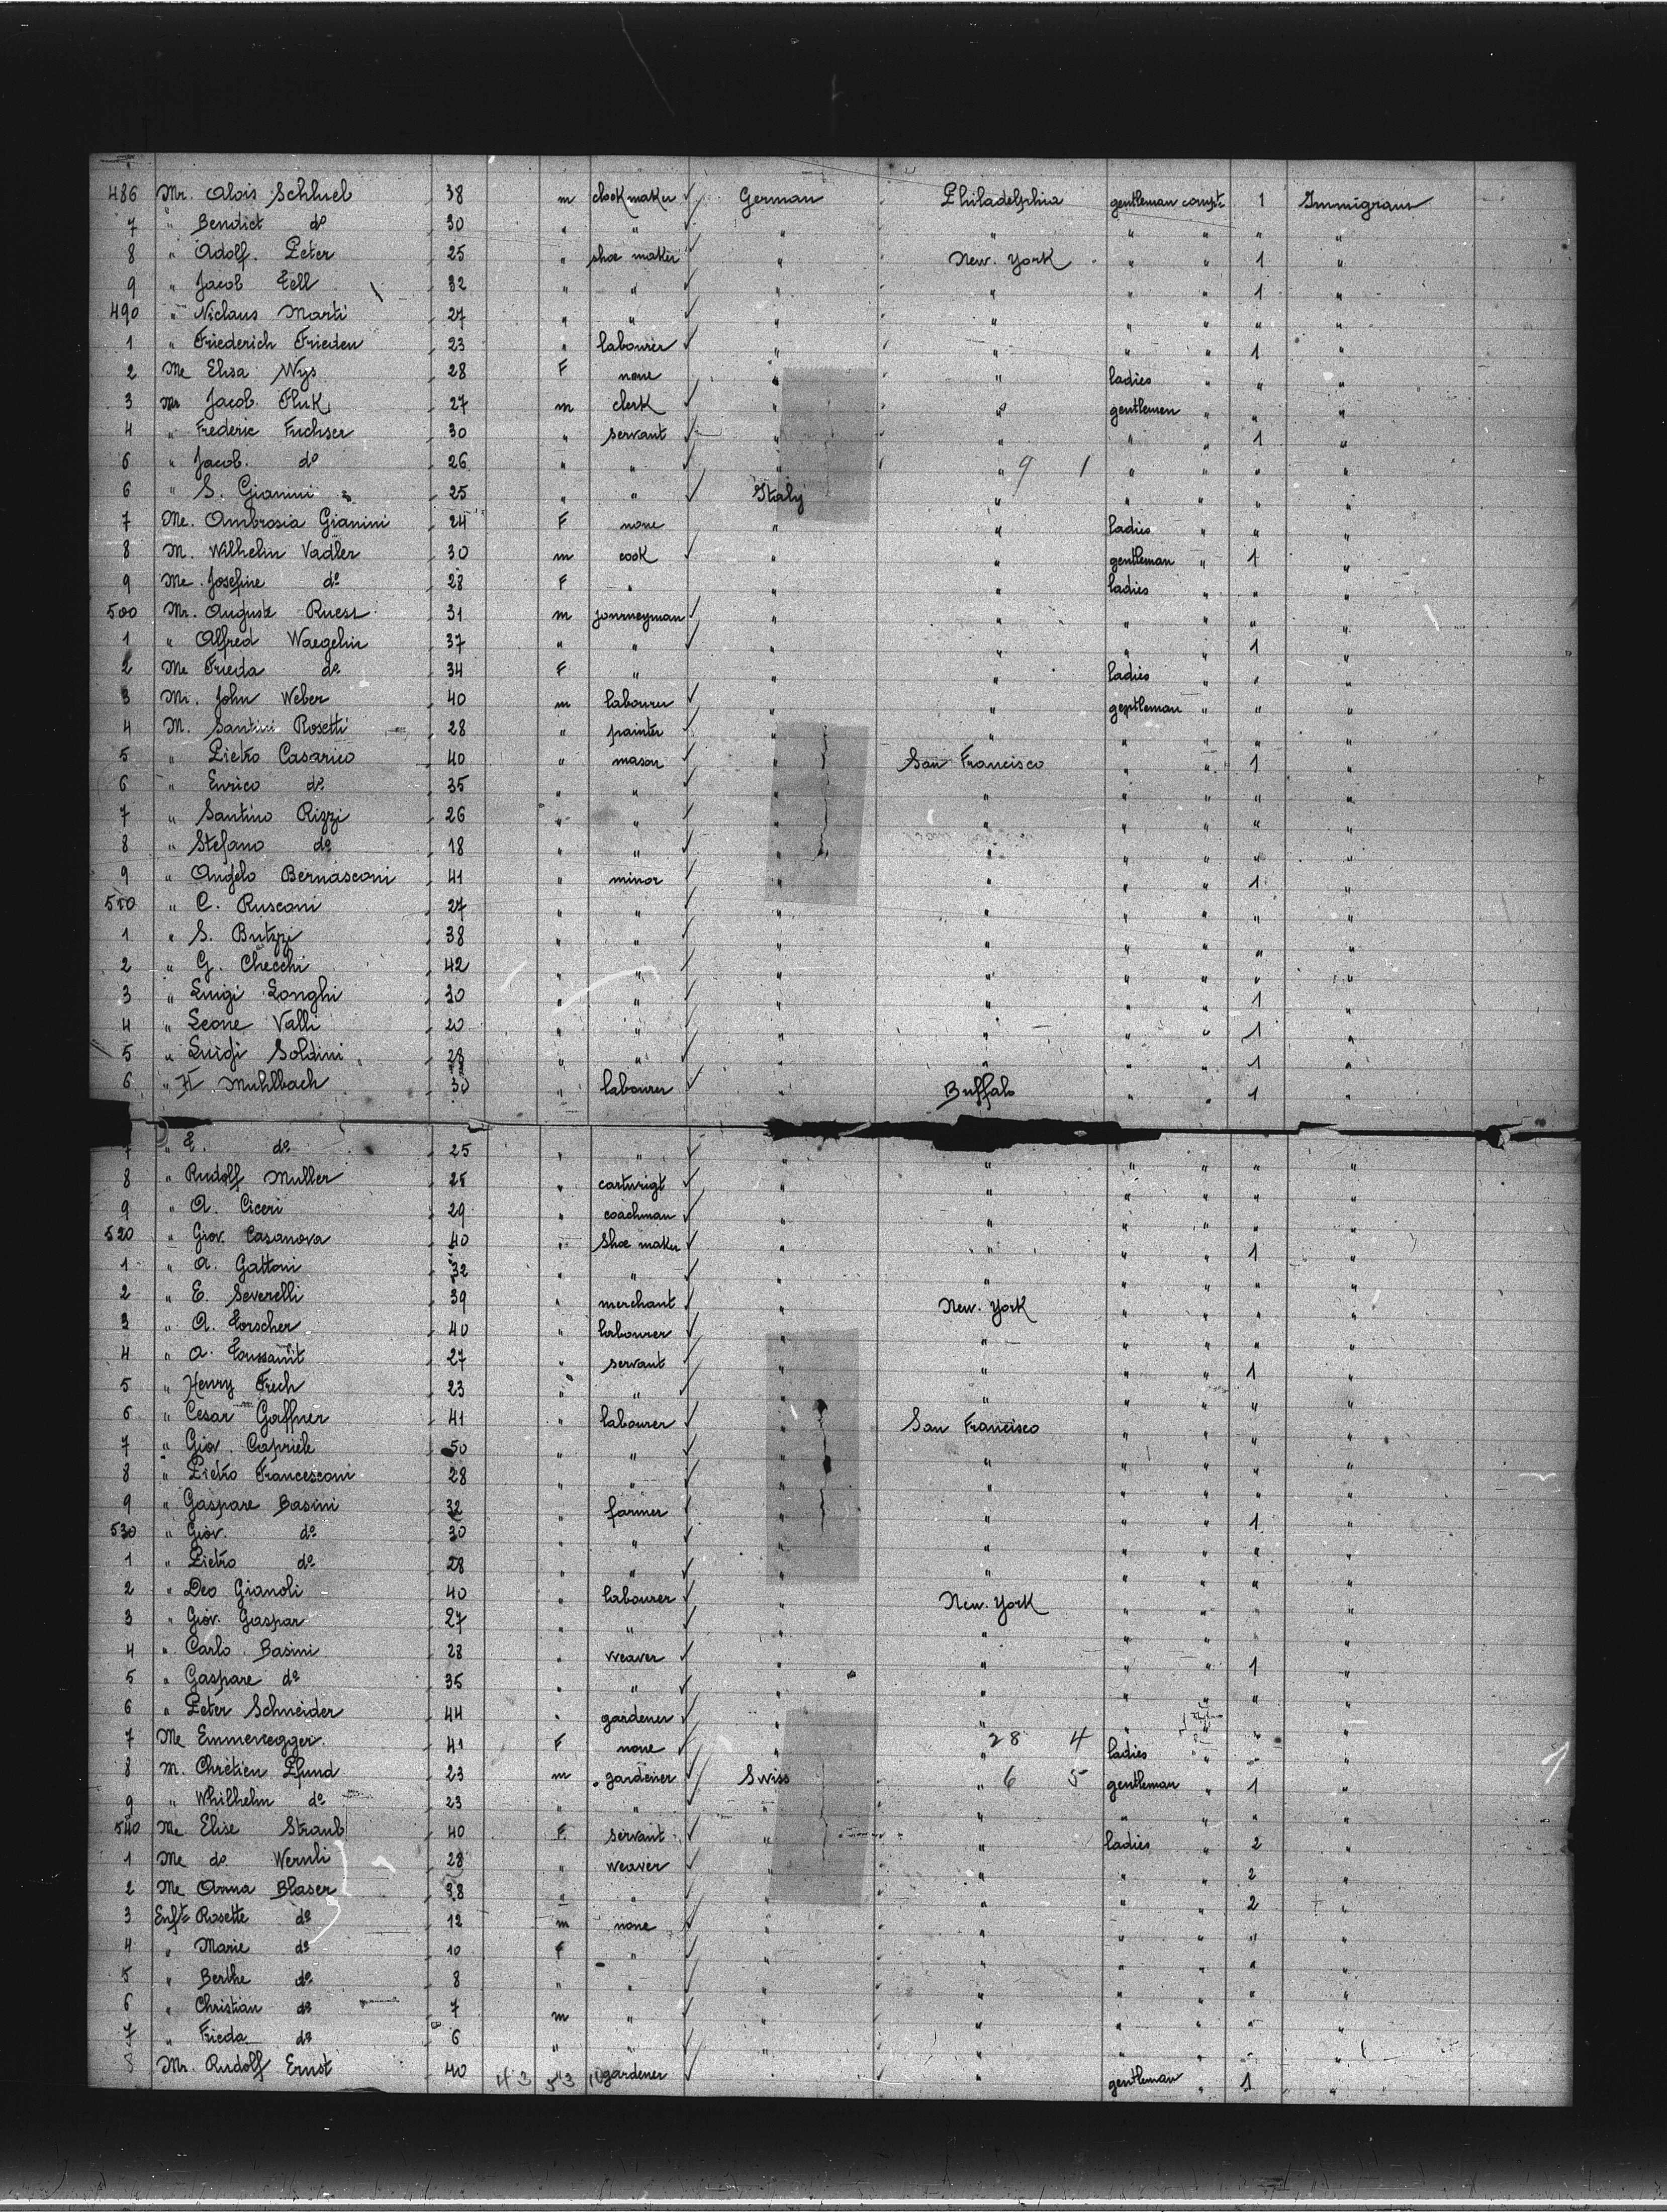 486 Mr. Alois Schluel 38 m clockmaker ✓ German Philadelphia gentleman compt 1 Immigrant
7 " Bendict do 30 " " ✓ " " " " " "
8 " Adolf. Peter 25 " shoe maker ✓ " New. York " " 1 "
9 " Jacob Tell 32 " " ✓ " " " " 1 "
490 " Niclaus Marti 27 " " ✓ " " " " " "
1 " Friederich Frieden 23 " labourer ✓ " " " " 1 "
2 Me Elisa Wys 28 F none " " ladies " " "
3 Mr Jacob. Fluk 27 m clerk ✓ " " gentlemen " " "
4 " Frederic Fuchser 30 " servant ✓ " " " " 1 "
6 " Jacob. do 26 " " ✓ " " 9 1 " " " "
6 " S. Gianini 25 " " ✓ Italy " " " " "
7 Me. Ambrosia Gianini 24 F none " " ladies " " "
8 M. Wilhelm Vadler 30 m cook ✓ " " gentleman " 1 "
9 Me. Josefine do 28 F " " " ladies " " "
500 Mr. August Ruess 31 m journeyman ✓ " " " " " "
1 " Alfred Waegelin 37 " " ✓ " " " " 1 "
2 Me Frieda do 34 F " " " ladies " " "
3 Mr. John Weber 40 m labourer ✓ " " gentleman " " "
4 M. Santini Rosetti 28 " painter ✓ " " " " " "
5 " Pietro Casarico 40 " mason ✓ " San Francisco " " 1 "
6 " Enrico do 35 " " ✓ " " " " " "
7 " Santino Rizzi 26 " " ✓ " " " " " "
8 " Stefano do 18 " " ✓ " " " " " "
9 " Angelo Bernasconi 41 " minor ✓ " " " " 1 "
510 " C. Rusconi 27 " " ✓ " " " " " "
1 " S. Butzzi 38 " " ✓ " " " " " "
2 " G. Checchi 42 " " ✓ " " " " " "
3 " Luigi Longhi 30 " " ✓ " " " " 1 "
4 " Leone Valli 20 " " ✓ " " " " 1 "
5 " Luigi Soldini 28 " " ✓ " " " " 1 "
6 " H. Muhlbach 30 " labourer ✓ " Buffalo " " 1 "
7 " E. do 25 " " ✓ " " " " " "
8 " Rudolf Muller 25 " cartwrigt ✓ " " " " " "
9 " A. Ciceri 29 " coachman ✓ " " " " " "
520 " Giov. Casanova 40 " Shoe maker ✓ " " " " 1 "
1 " A. Gattoni 32 " " ✓ " " " " " "
2 " E. Severelli 39 " merchant ✓ " New. York " " " "
3 " A. Torscher 40 " labourer ✓ " " " " " "
4 " A. Toussaint 27 " servant ✓ " " " " 1 "
5 " Henry Frech 23 " " ✓ " " " " " "
6 " Cesar Gaffner 41 " labourer ✓ " San Francisco " " " "
7 " Giov. Capriele 50 " " ✓ " " " " " "
8 " Pietro Francesconi 28 " " ✓ " " " " " "
9 " Gaspare Basini 32 " farmer ✓ " " " " 1 "
530 " Giov. do 30 " " ✓ " " " " " "
1 " Pietro do 28 " " ✓ " " " " " "
2 " Deo Gianoli 40 " labourer ✓ " New. York " " " "
3 " Giov. Gaspar 27 " " ✓ " " " " " "
4 " Carlo. Basini 28 " weaver ✓ " " " " 1 "
5 " Gaspare do 35 " " ✓ " " " " " "
6 " Peter Schneider 44 " gardener ✓ " " " " " "
7 Me Emmenegger. 41 F none ✓ " " 28 4 ladies " " "
8 M. Chretien Pfund 23 m gardener ✓ Swiss " 6 5 gentleman " 1 "
9 " Whilhelm do 23 " " ✓ " " " " " "
540 Me Elise Straub 40 F servant ✓ " " ladies " 2 "
1 Me do Wernli 28 " weaver ✓ " " " " 2 "
2 Me Anna Blaser 38 " " ✓ " " " " 2 "
3 Enft Rosette do 12 m none ✓ " " " " " "
4 " Marie do 10 F " ✓ " " " " " "
5 " Berthe do 8 " " ✓ " " " " " "
6 " Christian do 7 m " ✓ " " " " " "
7 " Frieda do 6 " " ✓ " " " " " "
8 Mr. Rudolf Ernst 40 43 543 gardener ✓ " " gentleman " 1 "